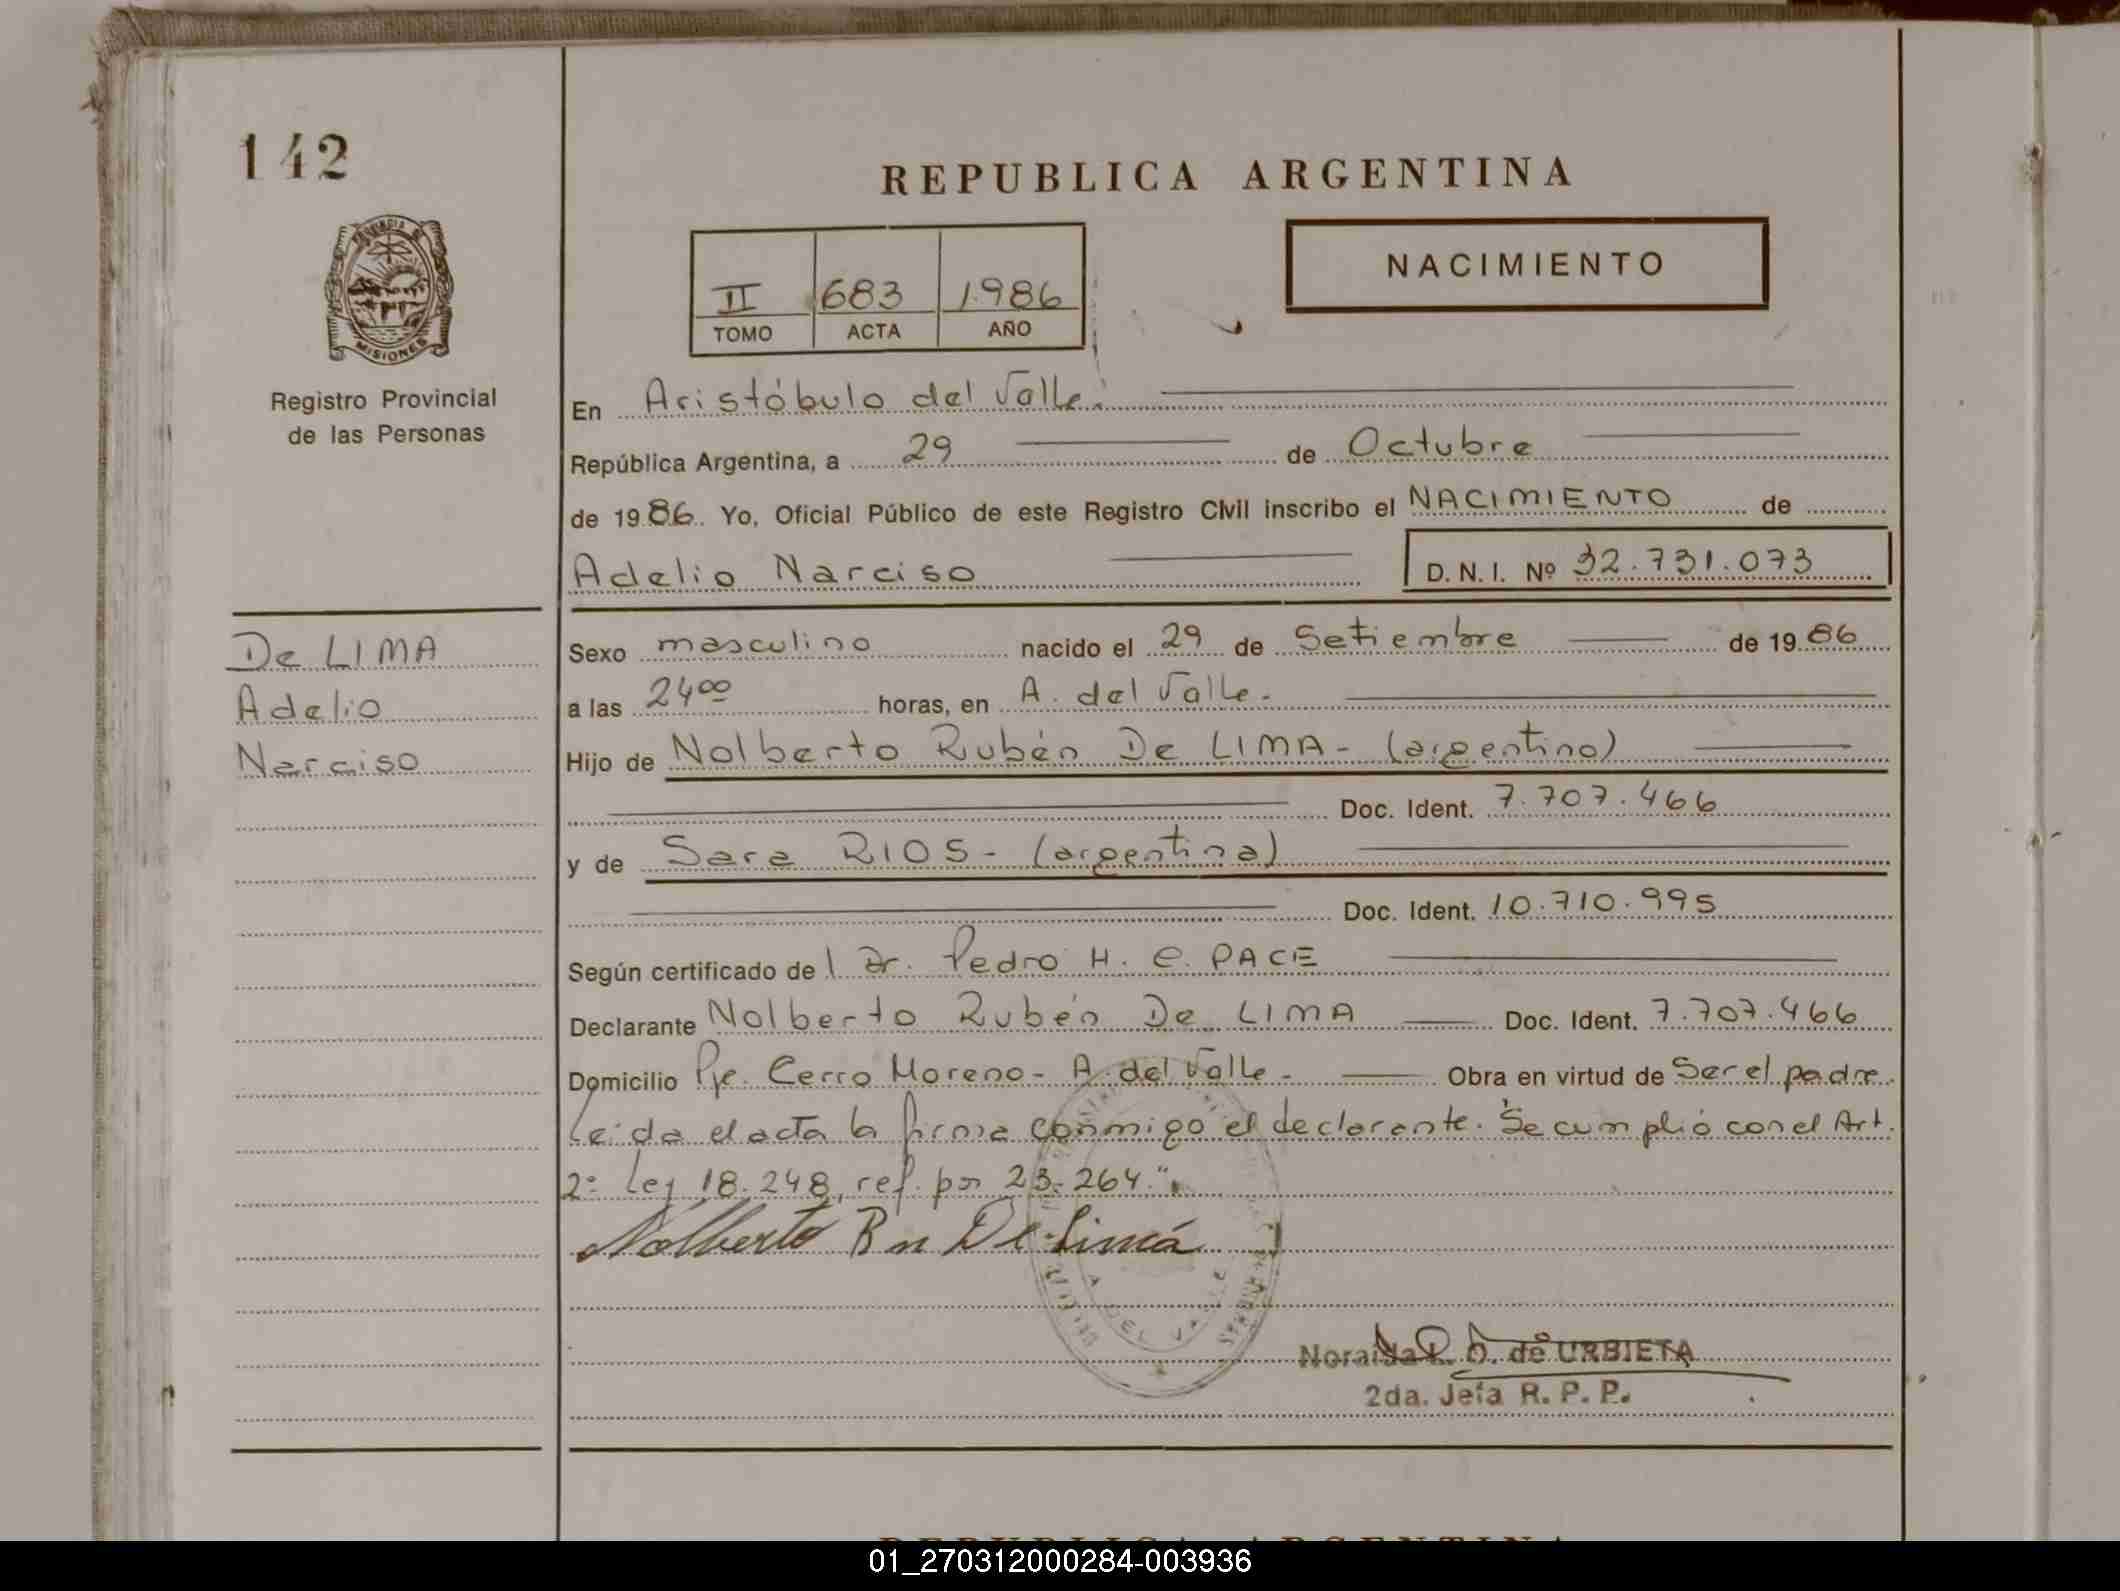 142
REPUBLICA ARGENTINA
NACIMIENTO
II 683 1.986
TOMO ACTA AÑO
PROVINCIA DE
MISIONES
Registro Provincial
de las Personas
En Aristóbulo del Valle.
República Argentina, a 29 de Octubre
de 1986. Yo, Oficial Público de este Registro Civil inscribo el NACIMIENTO de
Adelio Narciso D. N. I. Nº 32.731.073
De LIMA
Adelio
Narciso
Sexo masculino nacido el 29 de Setiembre de 1986
a las 24ºº horas, en A. del Valle.-
Hijo de Nolberto Rubén De LIMA- (argentino)
Doc. Ident. 7.707.466
y de Sara RIOS- (argentina)
Doc. Ident. 10.710.995
Según certificado de l Dr. Pedro H. C. PACE
Declarante Nolberto Rubén De LIMA Doc. Ident. 7.707.466
Domicilio Pje. Cerro Moreno- A. del Valle- Obra en virtud de Ser el padre.
Leida el acta la firma conmigo el declarante. Se cumplió con el Art.
2º Ley 18.248, ref. por 23.264."
Nolberto Rn De Lima
A. DEL VALLE
Noraida de URBIETA
2da. Jefa R. P. P.
REPUBLICA ARGENTINA
01_270312000284-003936